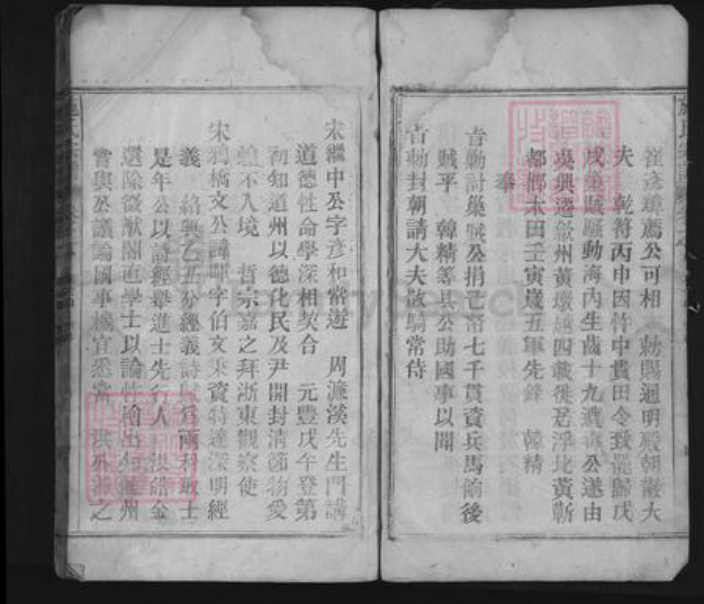 崔彥璋薦公可相 勅賜通明殿朝散大
夫 乾符丙申因忤中貴田令孜罷歸戊
戌巢賊騷動海內生齒十九遭公遂由
吳興遷歙州黃墩越四載徙居浮北黃新
都鄉木田壬寅歲五軍先鋒 韓精
奉
旨勅討巢賊公捐己帑七千貫資兵馬餉後
賊平 韓精等具公助國事以聞
旨勅封朝請大夫散騎常侍
宋繼中公字彥和常遊 周濂溪先生門講
道德性命學深相契合 元豐戊午登第
初知道州以德化民及尹開封清節物愛
蝗不入境 哲宗嘉之拜浙東觀察使
宋鴻橋文公諱字伯文天資特達深明經
義 紹興乙丑分經義詩賦為兩科取士
是年公以詩經舉進士先人 洪 金
選除徽猷閣直學士以論檜出知州
嘗與公議論國事機宜悉當 洪 之